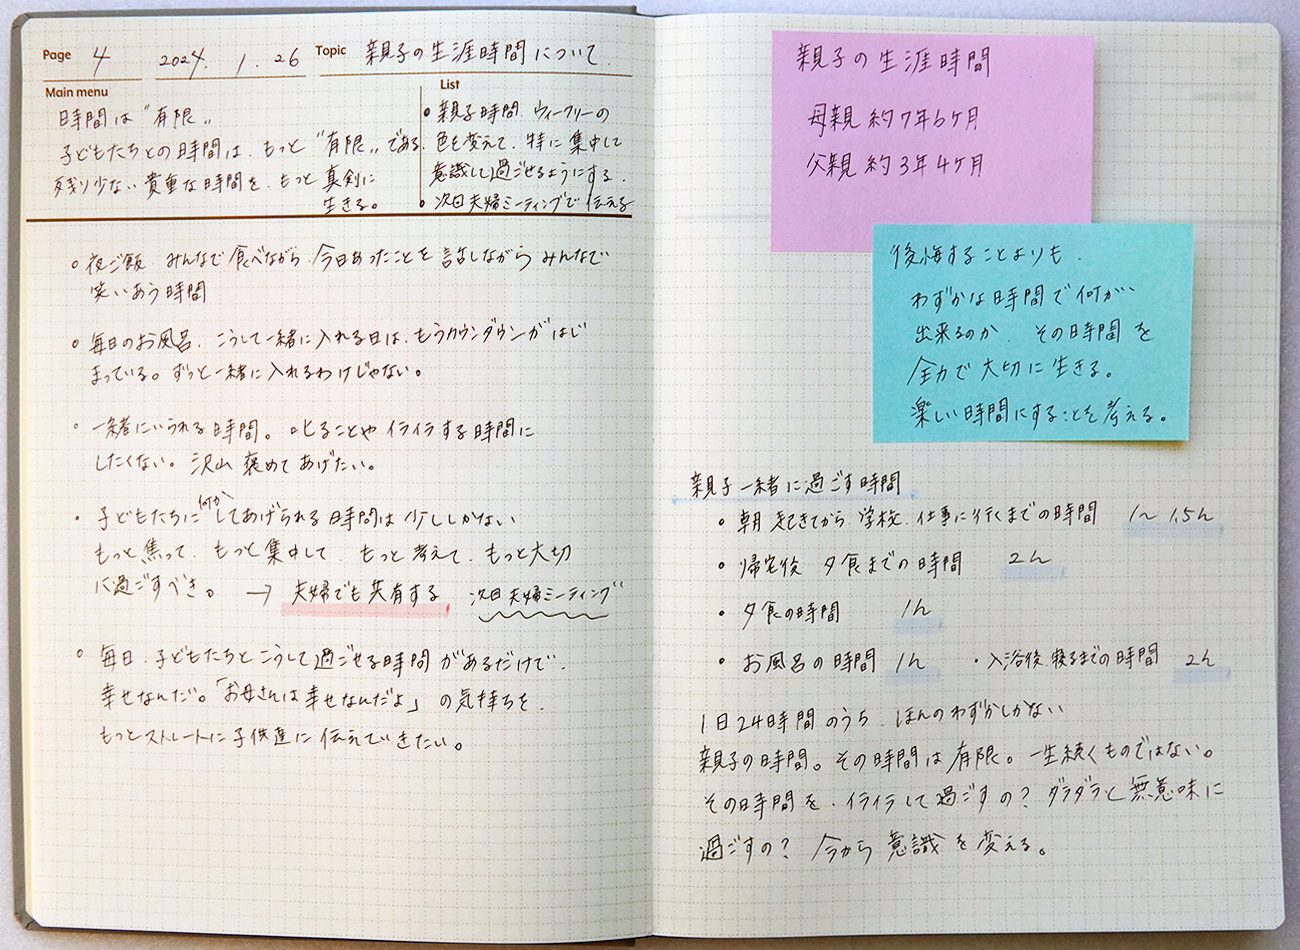 Page 4 2024. 1. 26 Topic 親子の生涯時間について.
Main menu
時間は"有限"
子どもたちとの時間は、もっと"有限"である.
残り少ない貴重な時間を、もっと真剣に
生きる。
List
• 親子時間、ウィークリーの
色を変えて、特に集中して
意識して過ごせるようにする.
• 次回夫婦ミーティングで伝える
• 夜ご飯 みんなで食べながら、今日あったことを話しながらみんなで
笑いあう時間
• 毎日のお風呂、こうして一緒に入れる日は、もうカウンダウンがはじ
まっている。ずっと一緒に入れるわけじゃない。
• 一緒にいられる時間。叱ることやイライラする時間に
したくない。沢山褒めてあげたい。
• 子どもたちに何かしてあげられる時間は少ししかない
もっと焦って、もっと集中して もっと考えて、もっと大切
に過ごすべき。 → 夫婦でも共有する 次回夫婦ミーティング
• 毎日、子どもたちとこうして過ごせる時間があるだけで、
幸せなんだ。「お母さんは幸せなんだよ」の気持ちを、
もっとストレートに子供達に伝えていきたい。
親子の生涯時間
母親 約7年6ヶ月
父親 約3年4ヶ月
後悔することよりも、
わずかな時間で何が
出来るのか、その時間を
全力で大切に生きる。
楽しい時間にすることを考える。
親子一緒に過ごす時間
• 朝起きてから、学校、仕事に行くまでの時間 1〜1.5h
• 帰宅後 夕食までの時間 2h
• 夕食の時間 1h
• お風呂の時間 1h • 入浴後、寝るまでの時間 2h
1日24時間のうち、ほんのわずかしかない
親子の時間。その時間は有限。一生続くものではない。
その時間を、イライラして過ごすの？ダラダラと無意味に
過ごすの？ 今から意識を変える。